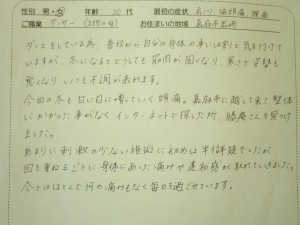 性別 男・女 年齢 30代 最初の症状 肩こり、偏頭痛、腰痛
ご職業 ダンサー お住まいの地域
ダンスをしている為、普段から自分の身体の事には割と気を付けています
が、冬になるとどうしても筋肉が固くなり、寒さで姿勢も
悪くなり いつも不調が表れます。
今回の冬も日に日に増していく頭痛。 に越して来て整体
にかかった事がなく インターネットで探した所、 さんを見つけ
ました。
あまりに刺激の少ない施術に初めは半信半疑でしたが
回を重ねるごとに身体にあった痛みや違和感が取れていきました。
今ではほとんど何の痛みもなく毎日を過ごせています。